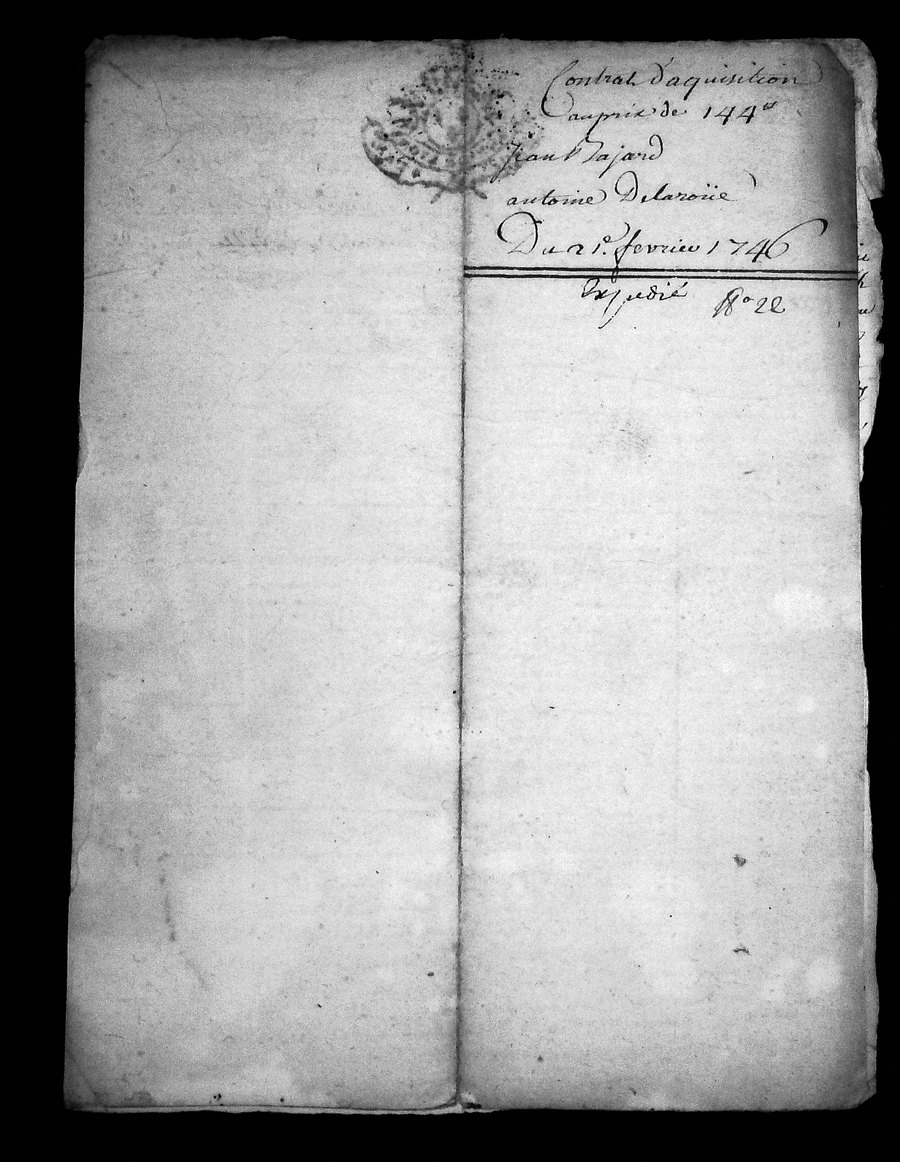 Contrat d'aquisition
au prix de 144ᵗᵗ
Jean Bajard
antoine Delaroüe
Du 21ᵉ. fevrier 1746
Expedié Nº 22